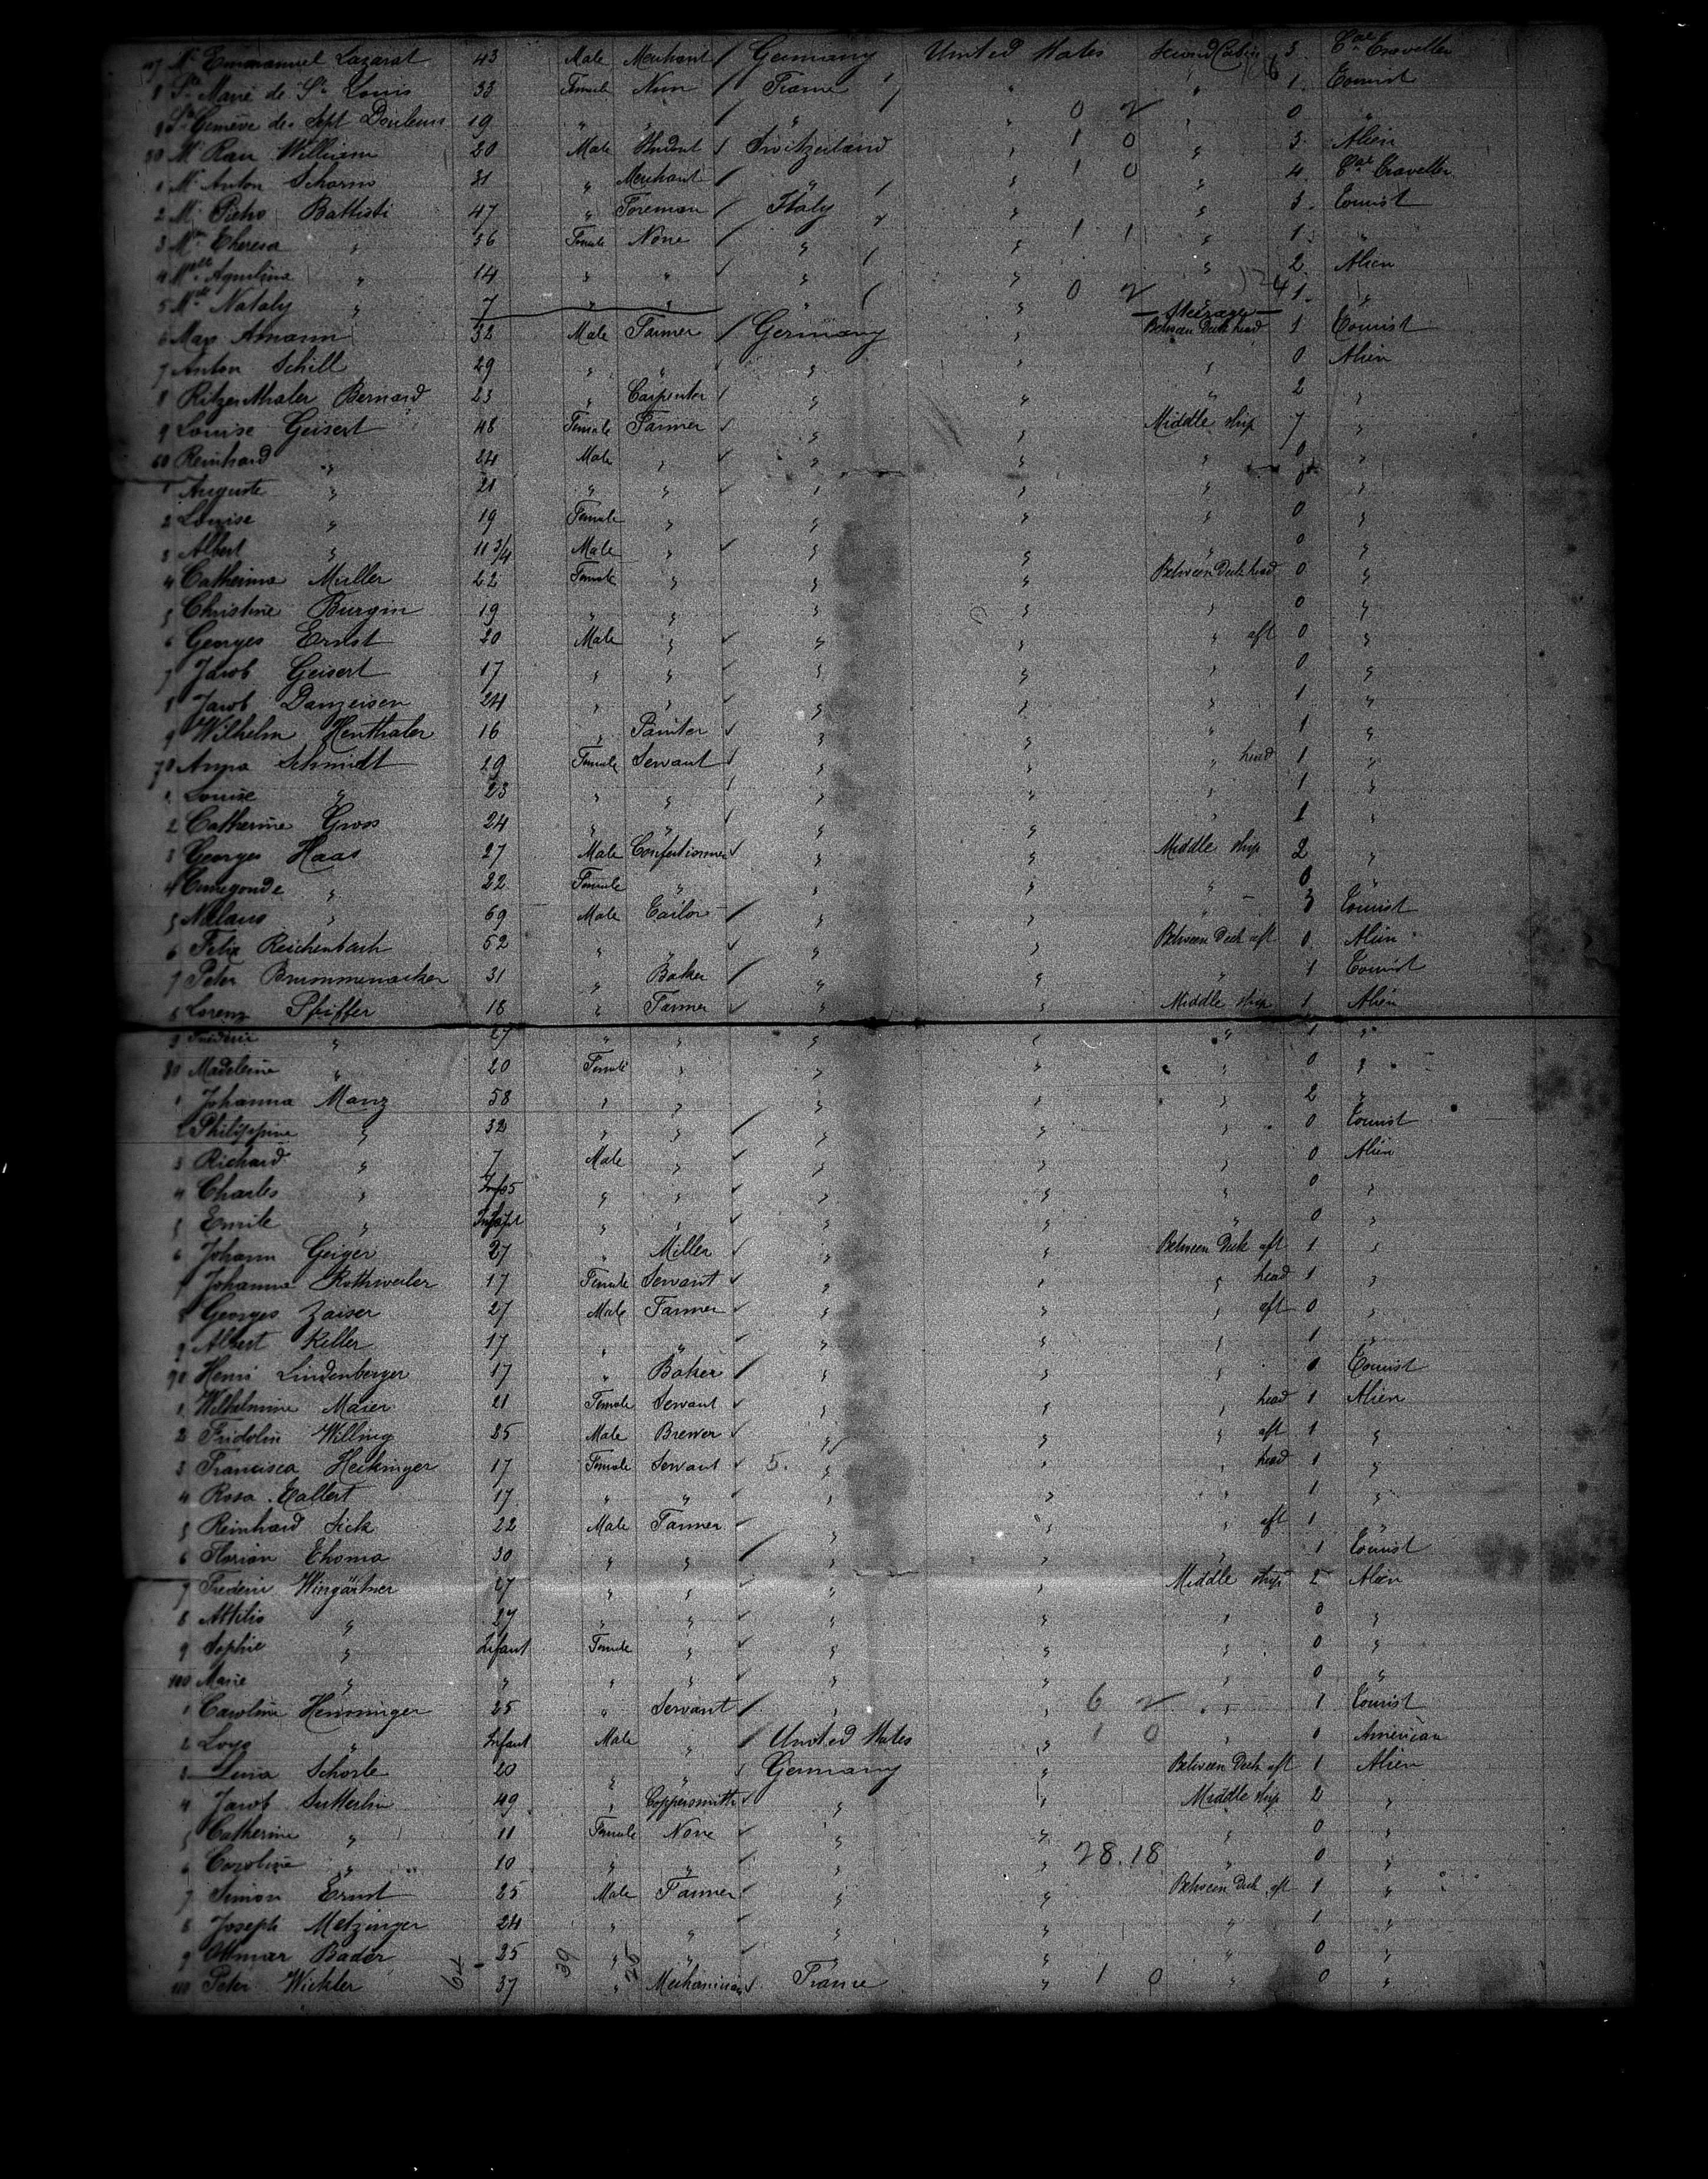 47 Mr Emmanuel Lazarat 43 Male Merchant / Germany United States Second Cabin 3. Cal Traveller
8 Sr Marie de St Louis 33 Female Nun / France " " 1. Tourist
9 Sr Genève des Sept Douleurs 19 " " / " " 0 2 " 0 "
50 Mr Rau William 20 Male Student / Switzerland " 1 0 " 3. Alien
1 Mr Anton Schorm 31 " Merchant / " " 1 0 " 4 Cal Traveller
2 Mr Pietro Battisti 47 " Foreman / Italy " " 3. Tourist
3 Mme Theresa " 36 Female None / " " 1 1 " 1. "
4 Mlle " 14 " " " " " 2. Alien
5 Mlle Nataly " 7 " " " " 0 2 1. "
6 Max Amann 32 Male Farmer / Germany " Steerage Between Deck head 1 Tourist
7 Anton Schill 29 " " " " " 0 Alien
8 Ritzenthaler Bernard 23 " Carpenter / " " " 2 "
9 Louise Geisert 48 Female Farmer " " Middle ship 7 "
60 Reinhard " 24 Male " " " " 0 "
1 Auguste " 21 " " " " " "
2 Louise " 19 Female " " " " 0 "
3 Albert " 11 3/4 Male " " " " 0 "
4 Catherina Muller 22 Female " " " Between Deck head 0 "
5 Christine Burgin 19 " " " " " 0 "
6 Georges Ernst 20 Male " " " " aft 0 "
7 Jacob Geisert 17 " " " " " 0 "
8 Jacob Danzeisen 24 " " " " " 1 "
9 Wilhelm Henthaler 16 " Painter " " " 1 "
70 Anna Schmidt 29 Female Servant " " " head 1 "
1 Louise " 23 " " " " " 1 "
2 Catherine Gross 24 " " " " " 1 "
3 Georges Haas 27 Male Confectionner " " Middle ship 2 "
4 Cunegonde " 22 Female " " " " 0 "
5 " 69 Male Tailor / " " " 3 Tourist
6 Felix Reichenbach 52 " " " " Between Deck aft 0 Alien
7 Peter Brummenacker 31 " Baker / " " " 1 Tourist
8 Lorenz Pfiffer 18 " Farmer " " Middle ship 1 Alien
9 Frederic " 27 " " " " " 1 "
80 Madeleine " 20 Female " " " " 0 "
1 Johanna Manz 58 " " " " " 2 "
2 Philippine " 32 " " / " " " 0 Tourist
3 Richard " 7 Male " " " " 0 Alien
4 Charles " " " " " " 0 "
5 Emile " Infant " " " " " 0 "
6 Johann Geiger 27 " Miller " " Between Deck aft 1 "
7 Johanna Rothweiler 17 Female Servant " " " head 1 "
8 Georges Zaiser 27 Male Farmer " " " aft 0 "
9 Albert Keller 17 " " " " " 1 "
90 Henri Lindenberger 17 " Baker / " " " 0 Tourist
1 Wilhelmine Maier 21 Female Servant " " " head 1 Alien
2 Fridolin Willmy 25 Male Brewer " " " aft 1 "
3 Francisca Heckinger 17 Female Servant 5. " " " head 1 "
4 Rosa 17 " " " " " 1 "
5 Reinhard Sick 22 Male Farmer " " " aft 1 "
6 Florian Thoma 30 " " / " " " 1 Tourist
7 Frederic Wingärtner 27 " " " " Middle ship 2 Alien
8 " 27 " " " " " 0 "
9 Sophie " Infant Female " " " " 0 "
100 Marie " " " " " " " 0 "
1 Caroline Henninger 25 " Servant / " " 6 2 " 1 Tourist
2 " Infant Male " / United States " 1 0 " 0 American
3 Lina Schörle 20 " " Germany " Between Deck aft 1 Alien
4 Jacob Sutterlin 49 " Coppersmith " " Middle ship 2 "
5 Catherine " 11 Female None " " " 0 "
6 Caroline " 10 " " " " 28.18 " 0 "
7 Simon Ernst 25 Male Farmer " " Between Deck aft 1 "
8 Joseph Metzinger 24 " " " " " 1 "
9 Ottmar Bader 25 " " " " " 0 "
110 Peter Wickler 37 " Mechanician France " 1 0 " 0 "
64 39 25